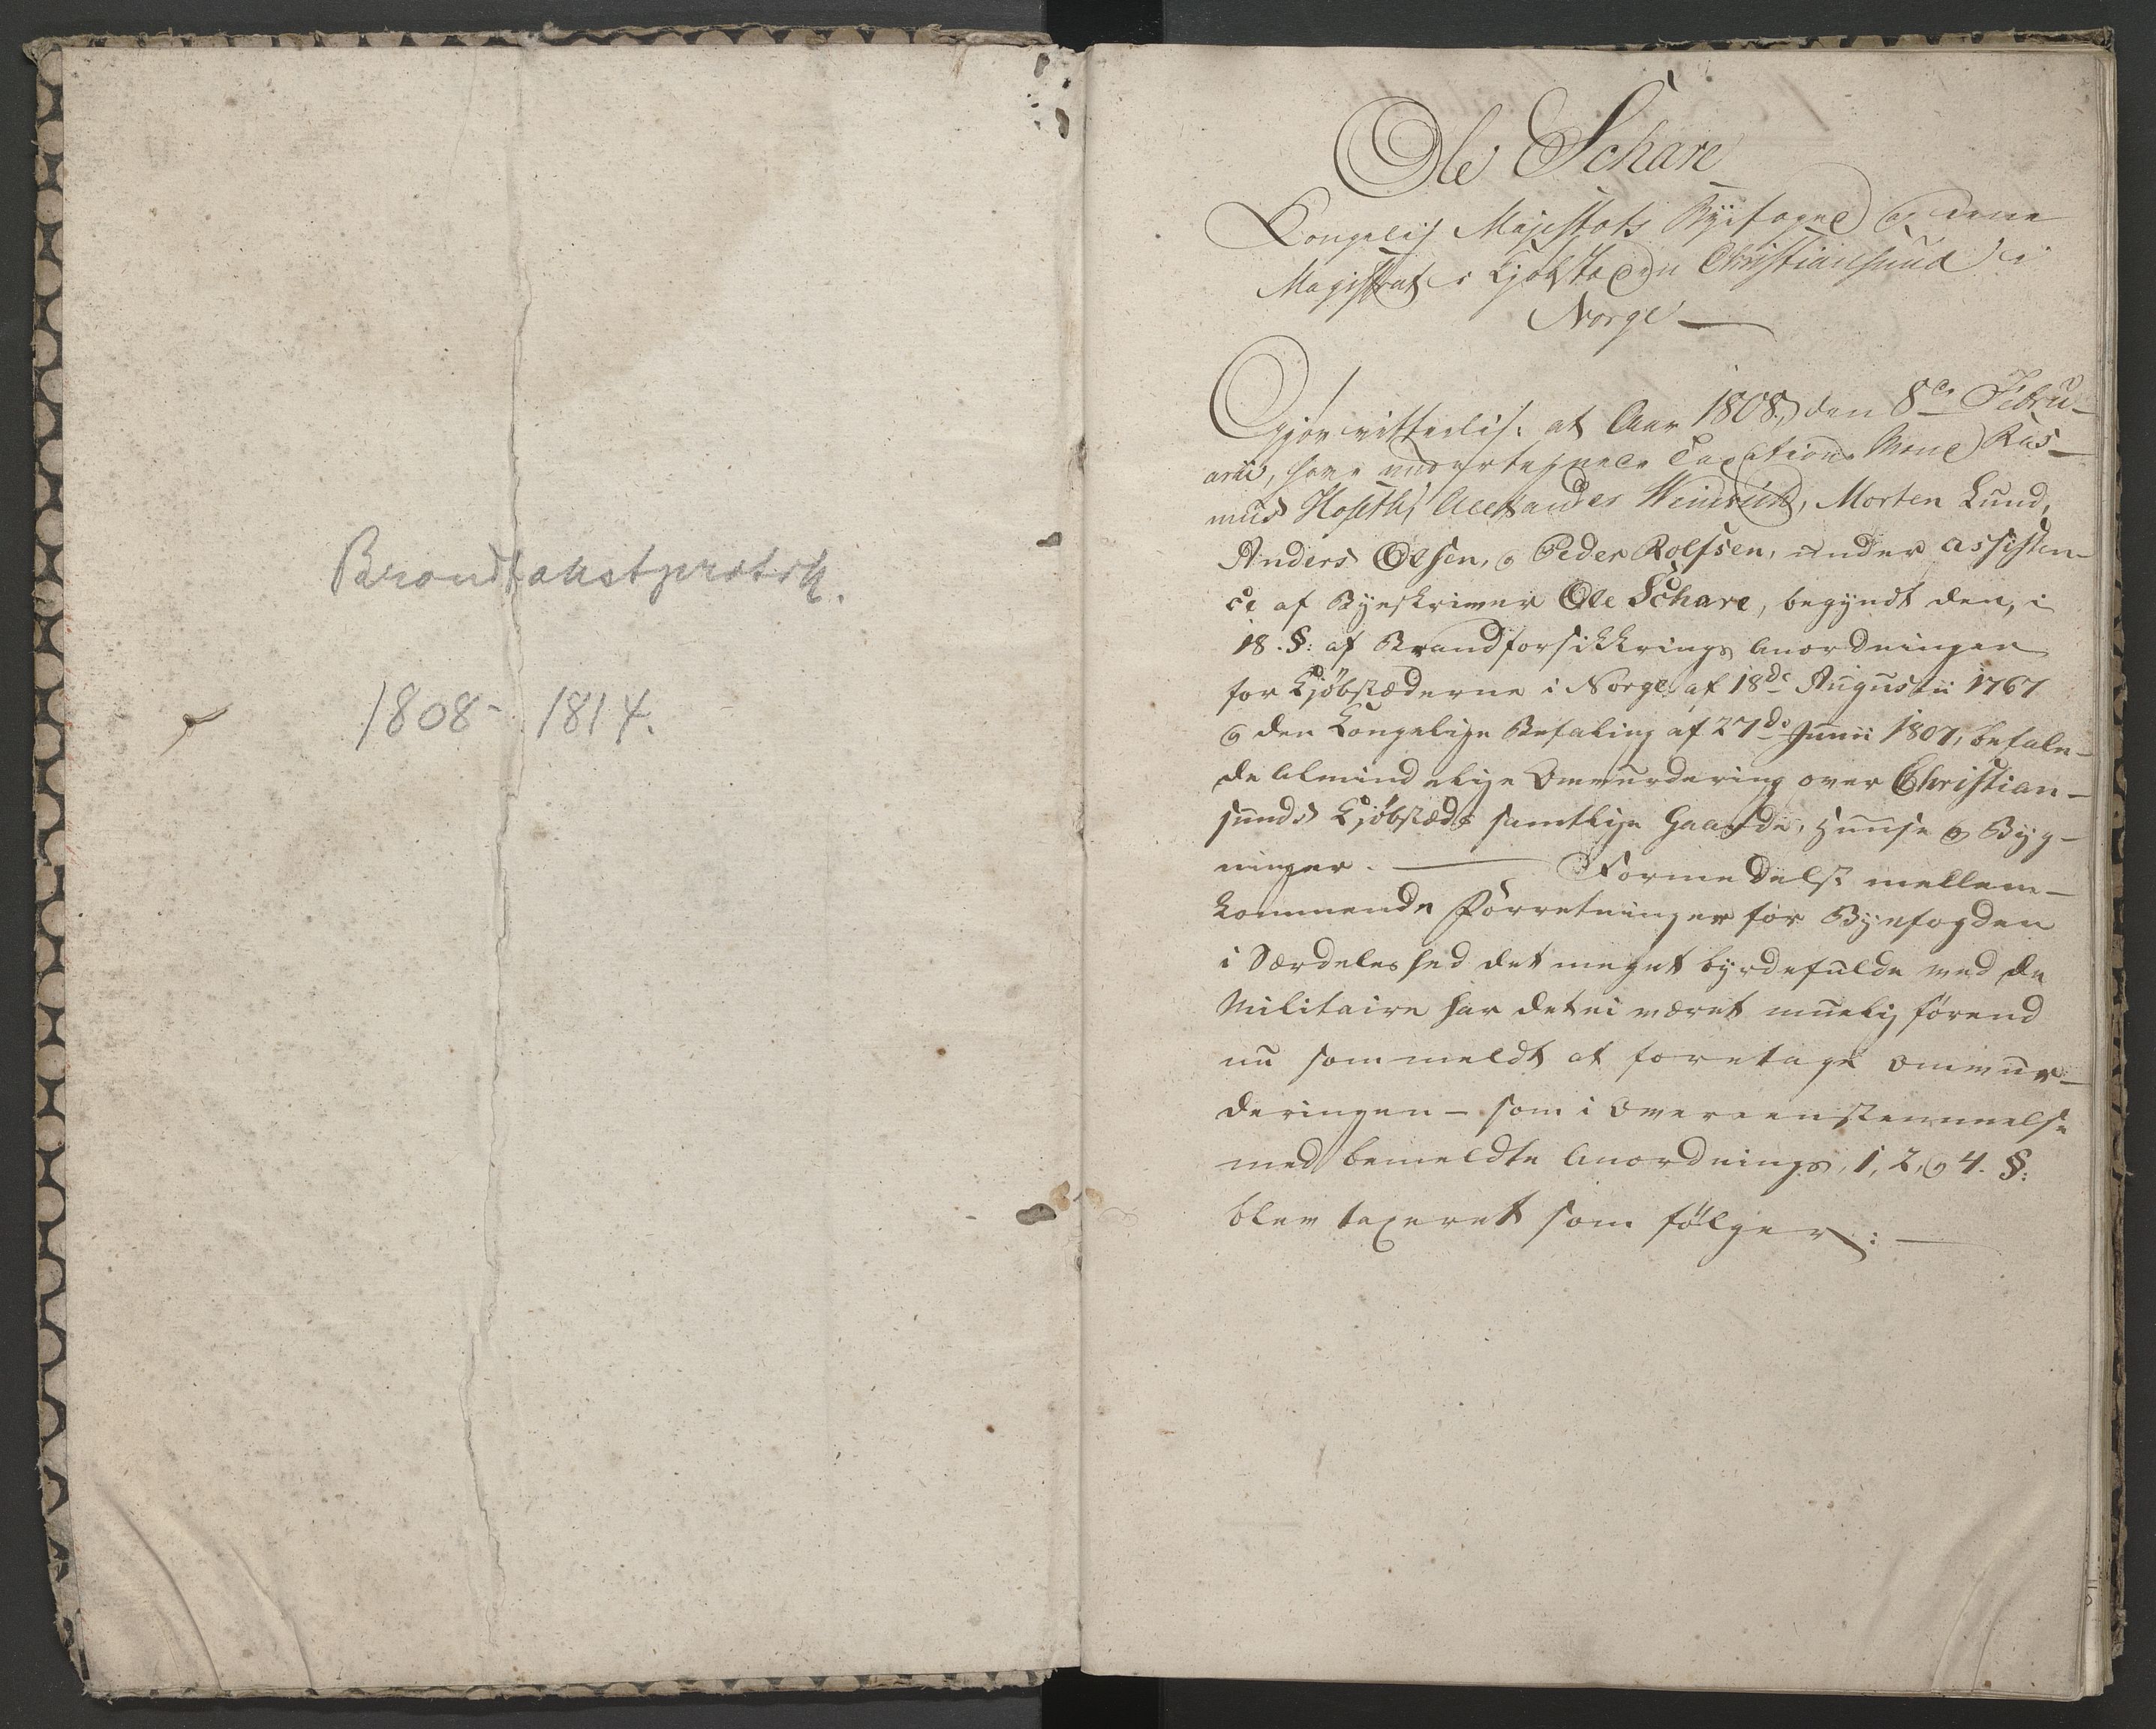 Brandtakstprotok.
1808 - 1814.
Ole Schare
Kongelig Majestæts Byefoged og eene
Magistrat i Kjøbstæden Christiansund i
Norge —
Gjør vitterlig: at Aar 1808, den 8de Febru-
arii, have undertegnede Taxations Mænd Ras-
mus Hoseth, Alexander Weinrich, Morten Lund,
Anders Olsen, og Peder Rolfsen, under assisten-
ce af Byeskriver Ole Schare, begyndt den, i
18. §: af Brandforsikkrings Anordningen
for Kjøbstæderne i Norge af 18de Augustii 1767
og den Kongelige Befaling af 27de Junii 1807, befale-
de almindelige Omvurdering over Christian-
sunds Kjøbstæds samtlige Gaarde, Huuse og Byg-
ninger. — Formedelst mellem-
kommende Forretninger for Byefogden
i Særdeleshed det meget byrdefulde med de
Militaire har det ei været muelig førend
nu som meldt at foretage Omvur-
deringen — som i Overeenstemmelse
med bemeldte Anordnings, 1, 2, og 4. §:
blev taxeret som følger: —